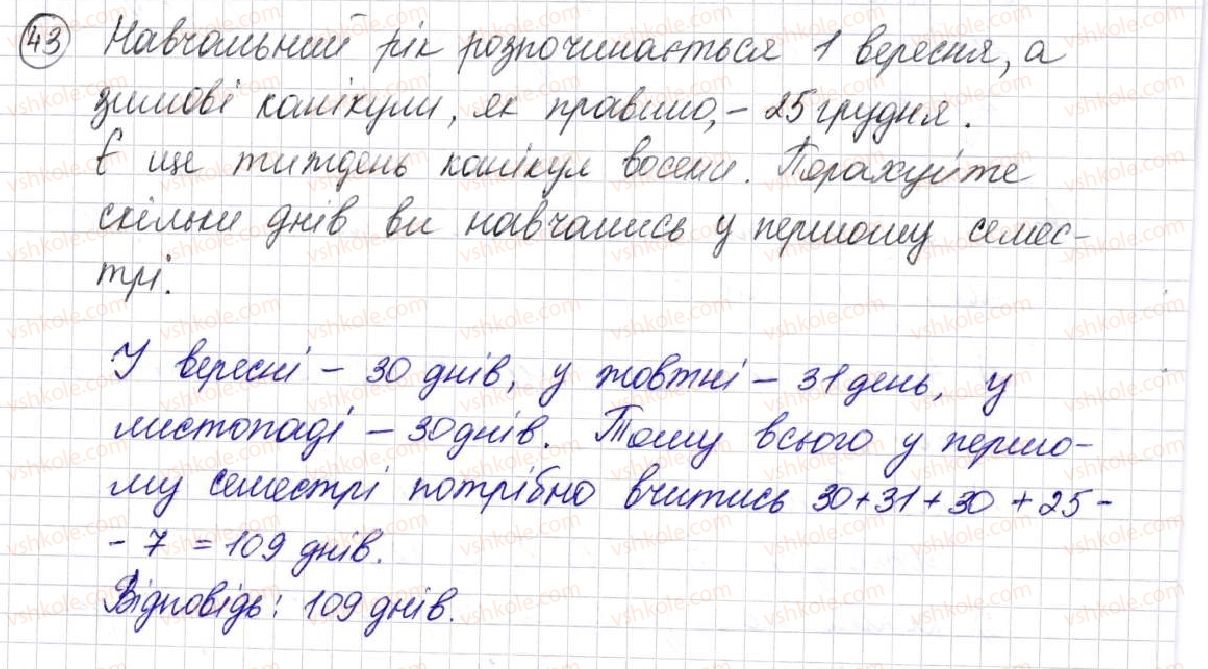 43 Навчальний рік розпочинається 1 вересня, а
зимові канікули, як правило, - 25 грудня.
Є ще тиждень канікул восени. Порахуйте
скільки днів ви навчались у першому семес-
трі.
У вересні - 30 днів, у жовтні - 31 день, у
листопаді - 30 днів. Тому всього у першо-
му семестрі потрібно вчитись 30+31+30+25-
- 7 = 109 днів.
Відповідь: 109 днів.